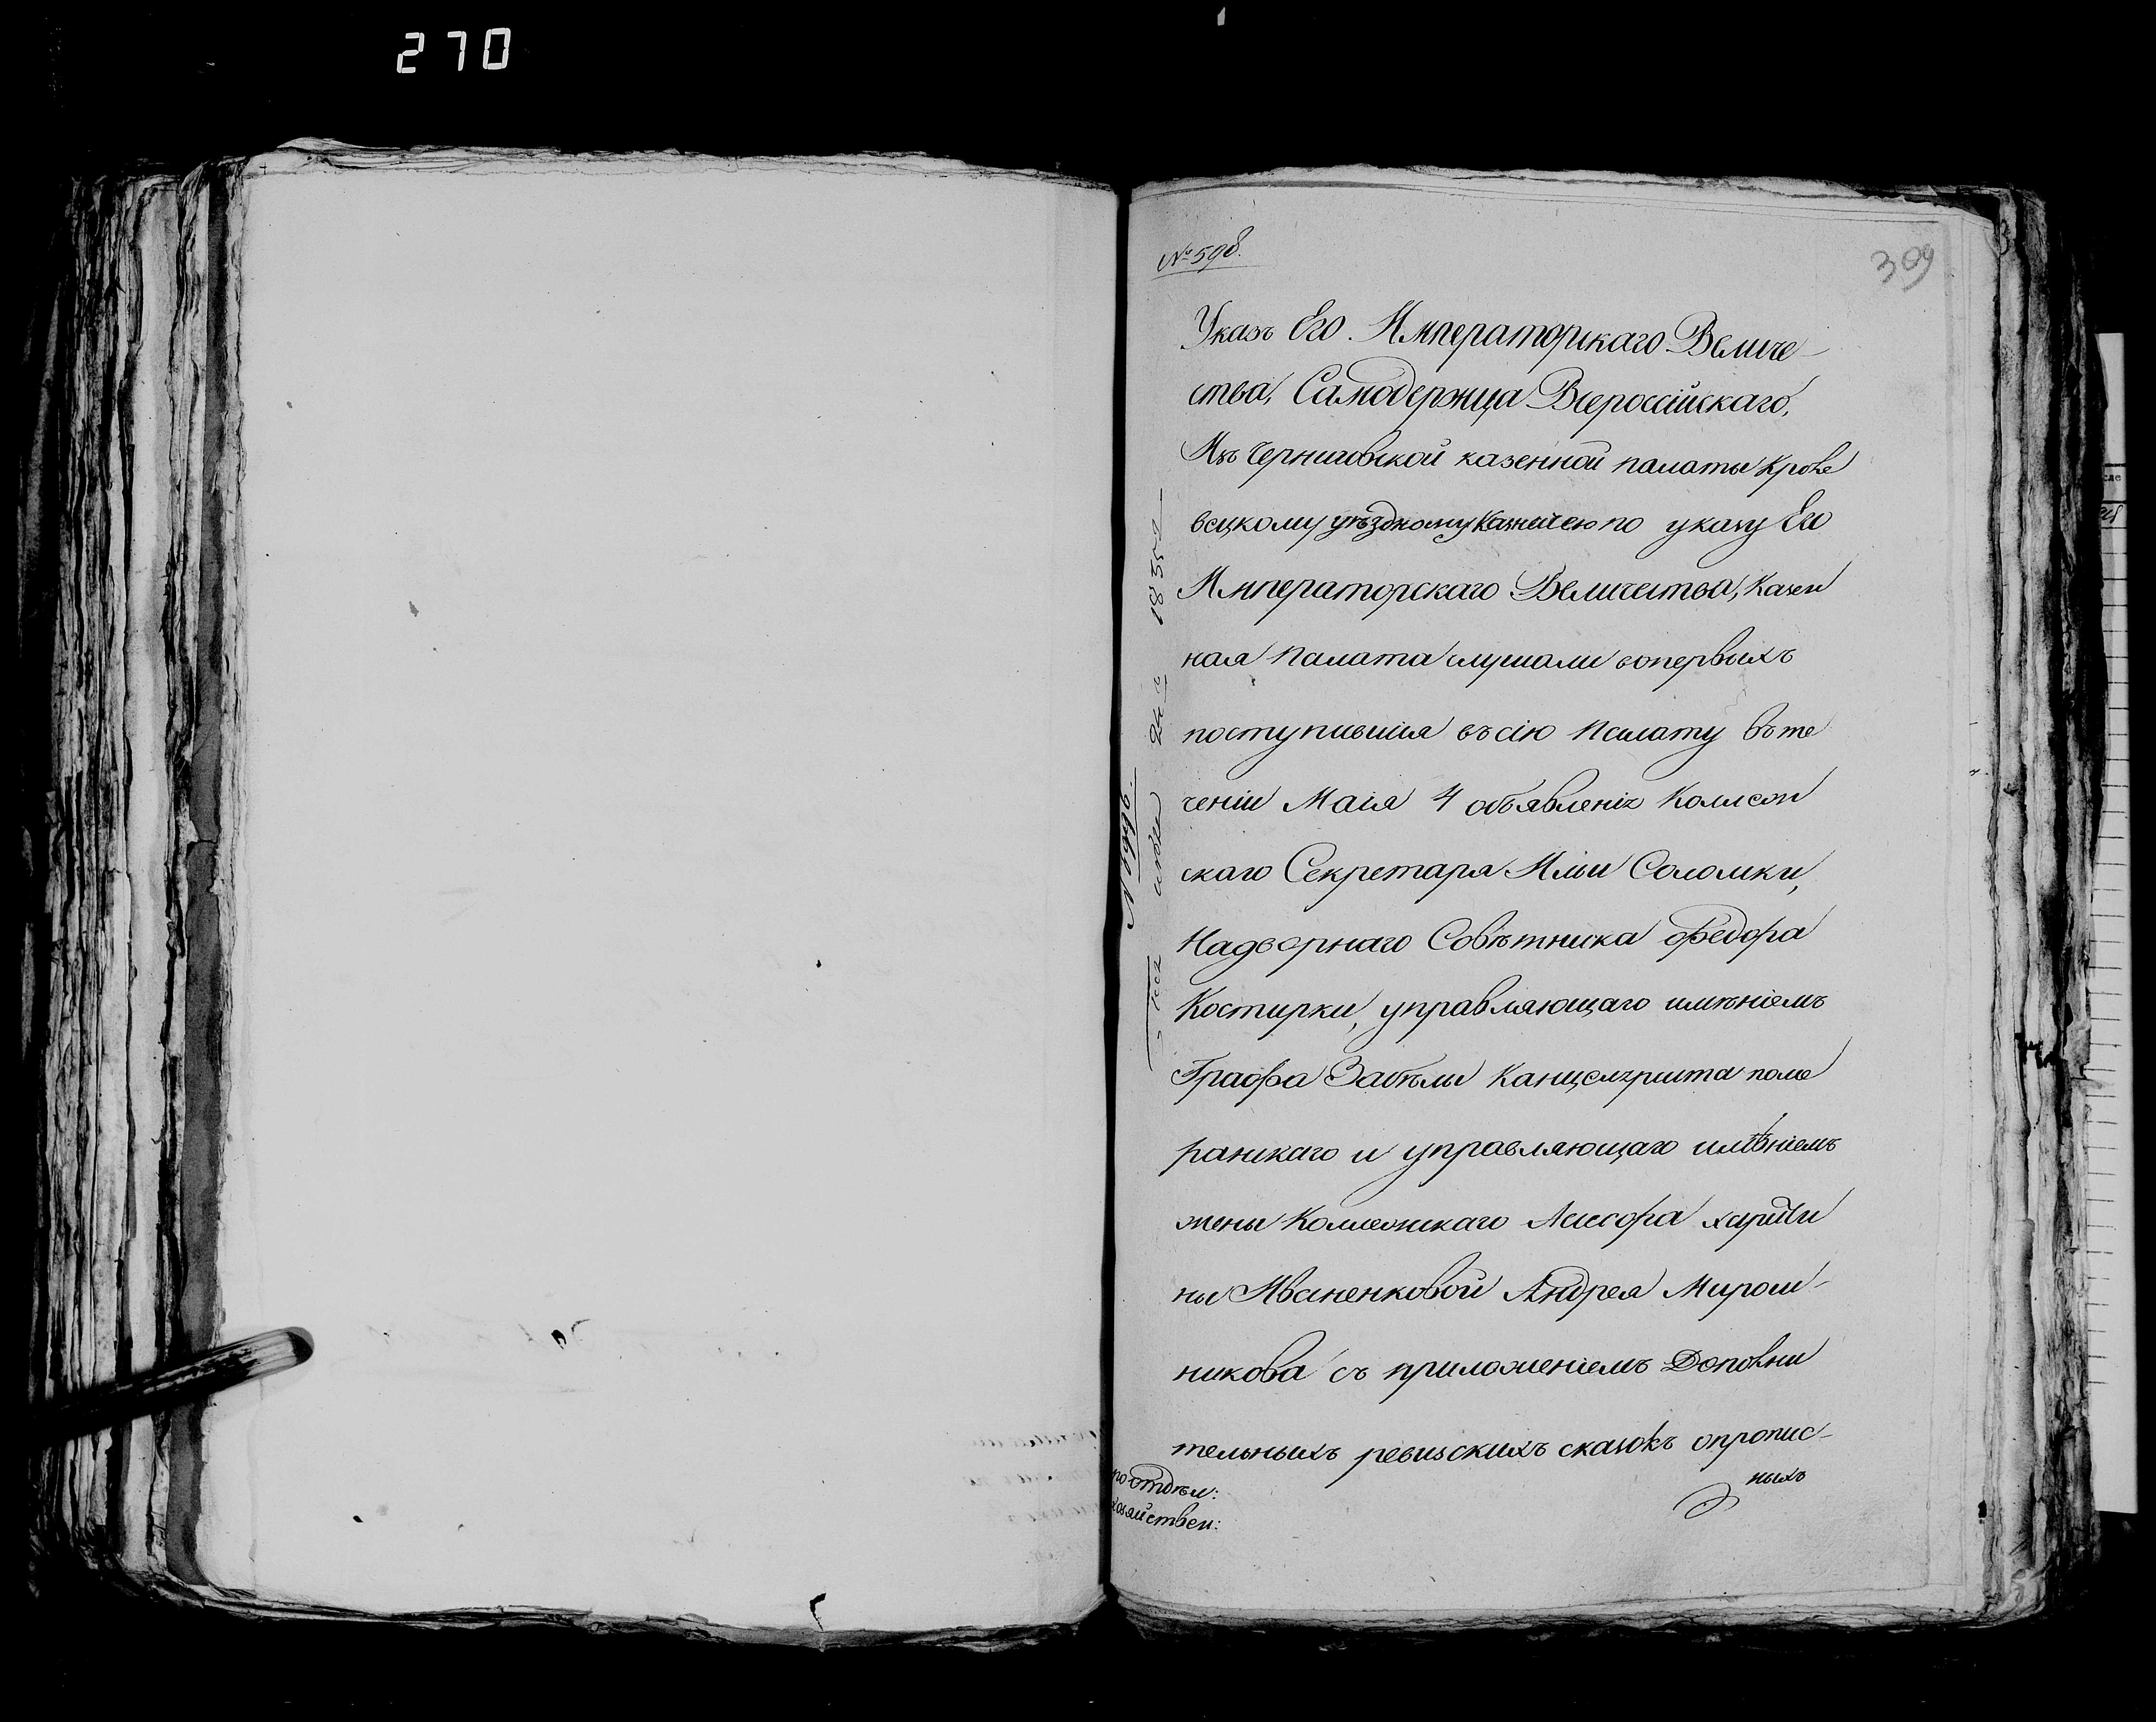 270
№ 598.
309
Указъ Его Императорскаго Величе-
ства, Самодержца Всероссійскаго,
Изъ Черниговской казенной палаты Кроле
вецкому уѣздному Казначею по указу Его
Императорскаго Величества, Казен
ная Палата слушали вопервыхъ
поступившія въ сію Палату въ те
ченіи Маія 4 объявленія Коллеж
скаго Секретаря Ильи Соломки,
Надворнаго Совѣтника Федора
Костирки, управляющаго имѣніемъ
Графа Забѣлы Канцеляриста поме
ранскаго и управляющаго имѣніемъ
жены Коллежскаго Ассесора Харити
ны Иваненковой Андрея Мирош-
никова съ приложеніемъ Дополни
тельныхъ ревизскихъ сказокъ опропис-
ныхъ
по отдѣл:
хозяйствен:
1835